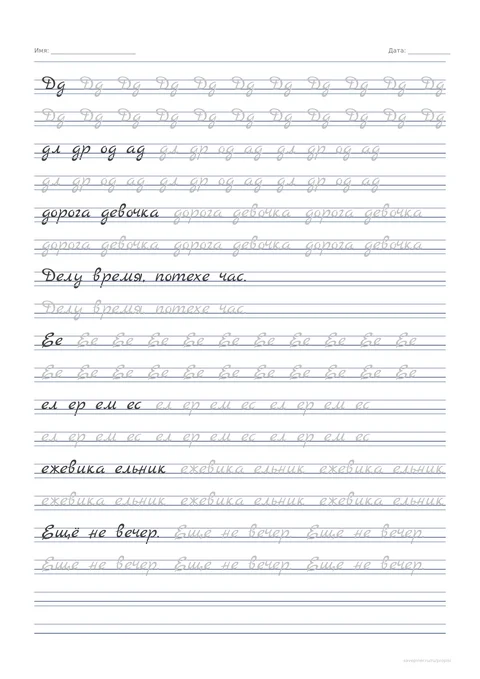 Имя: Дата:
Дд Дд Дд Дд Дд Дд Дд Дд Дд Дд Дд
Дд Дд Дд Дд Дд Дд Дд Дд Дд Дд Дд
дл др од ад дл др од ад дл др од ад
дл др од ад дл др од ад дл др од ад
дорога девочка дорога девочка дорога девочка
дорога девочка дорога девочка дорога девочка
Делу время, потехе час.
Делу время потехе час
Ее Ее Ее Ее Ее Ее Ее Ее Ее Ее Ее
Ее Ее Ее Ее Ее Ее Ее Ее Ее Ее Ее
ел ер ем ес ел ер ем ес ел ер ем ес
ел ер ем ес ел ер ем ес ел ер ем ес
ежевика ельник ежевика ельник ежевика ельник
ежевика ельник ежевика ельник ежевика ельник
Ещё не вечер. Еще не вечер Еще не вечер
Еще не вечер Еще не вечер Еще не вечер